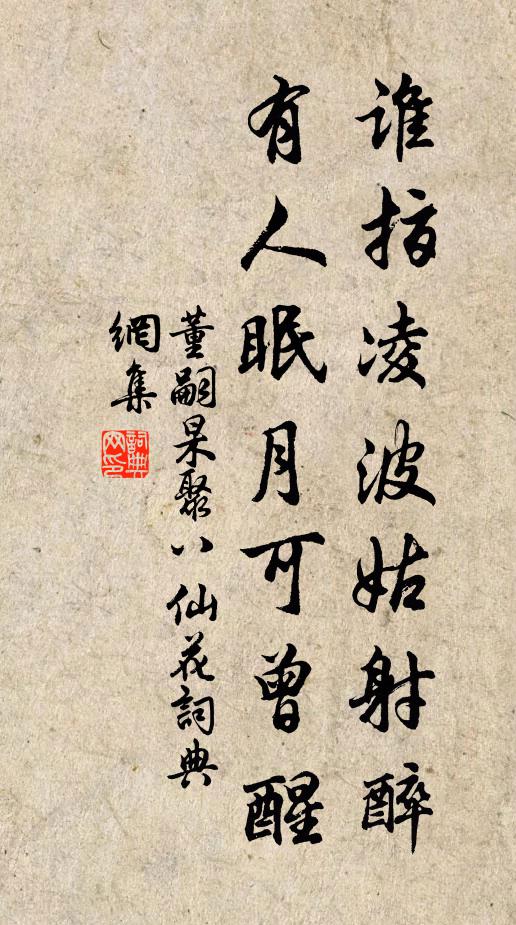 谁指凌波姑射醉
有人眠月可曾醒
董嗣杲聚八仙花詞典
網集
詞典
网印